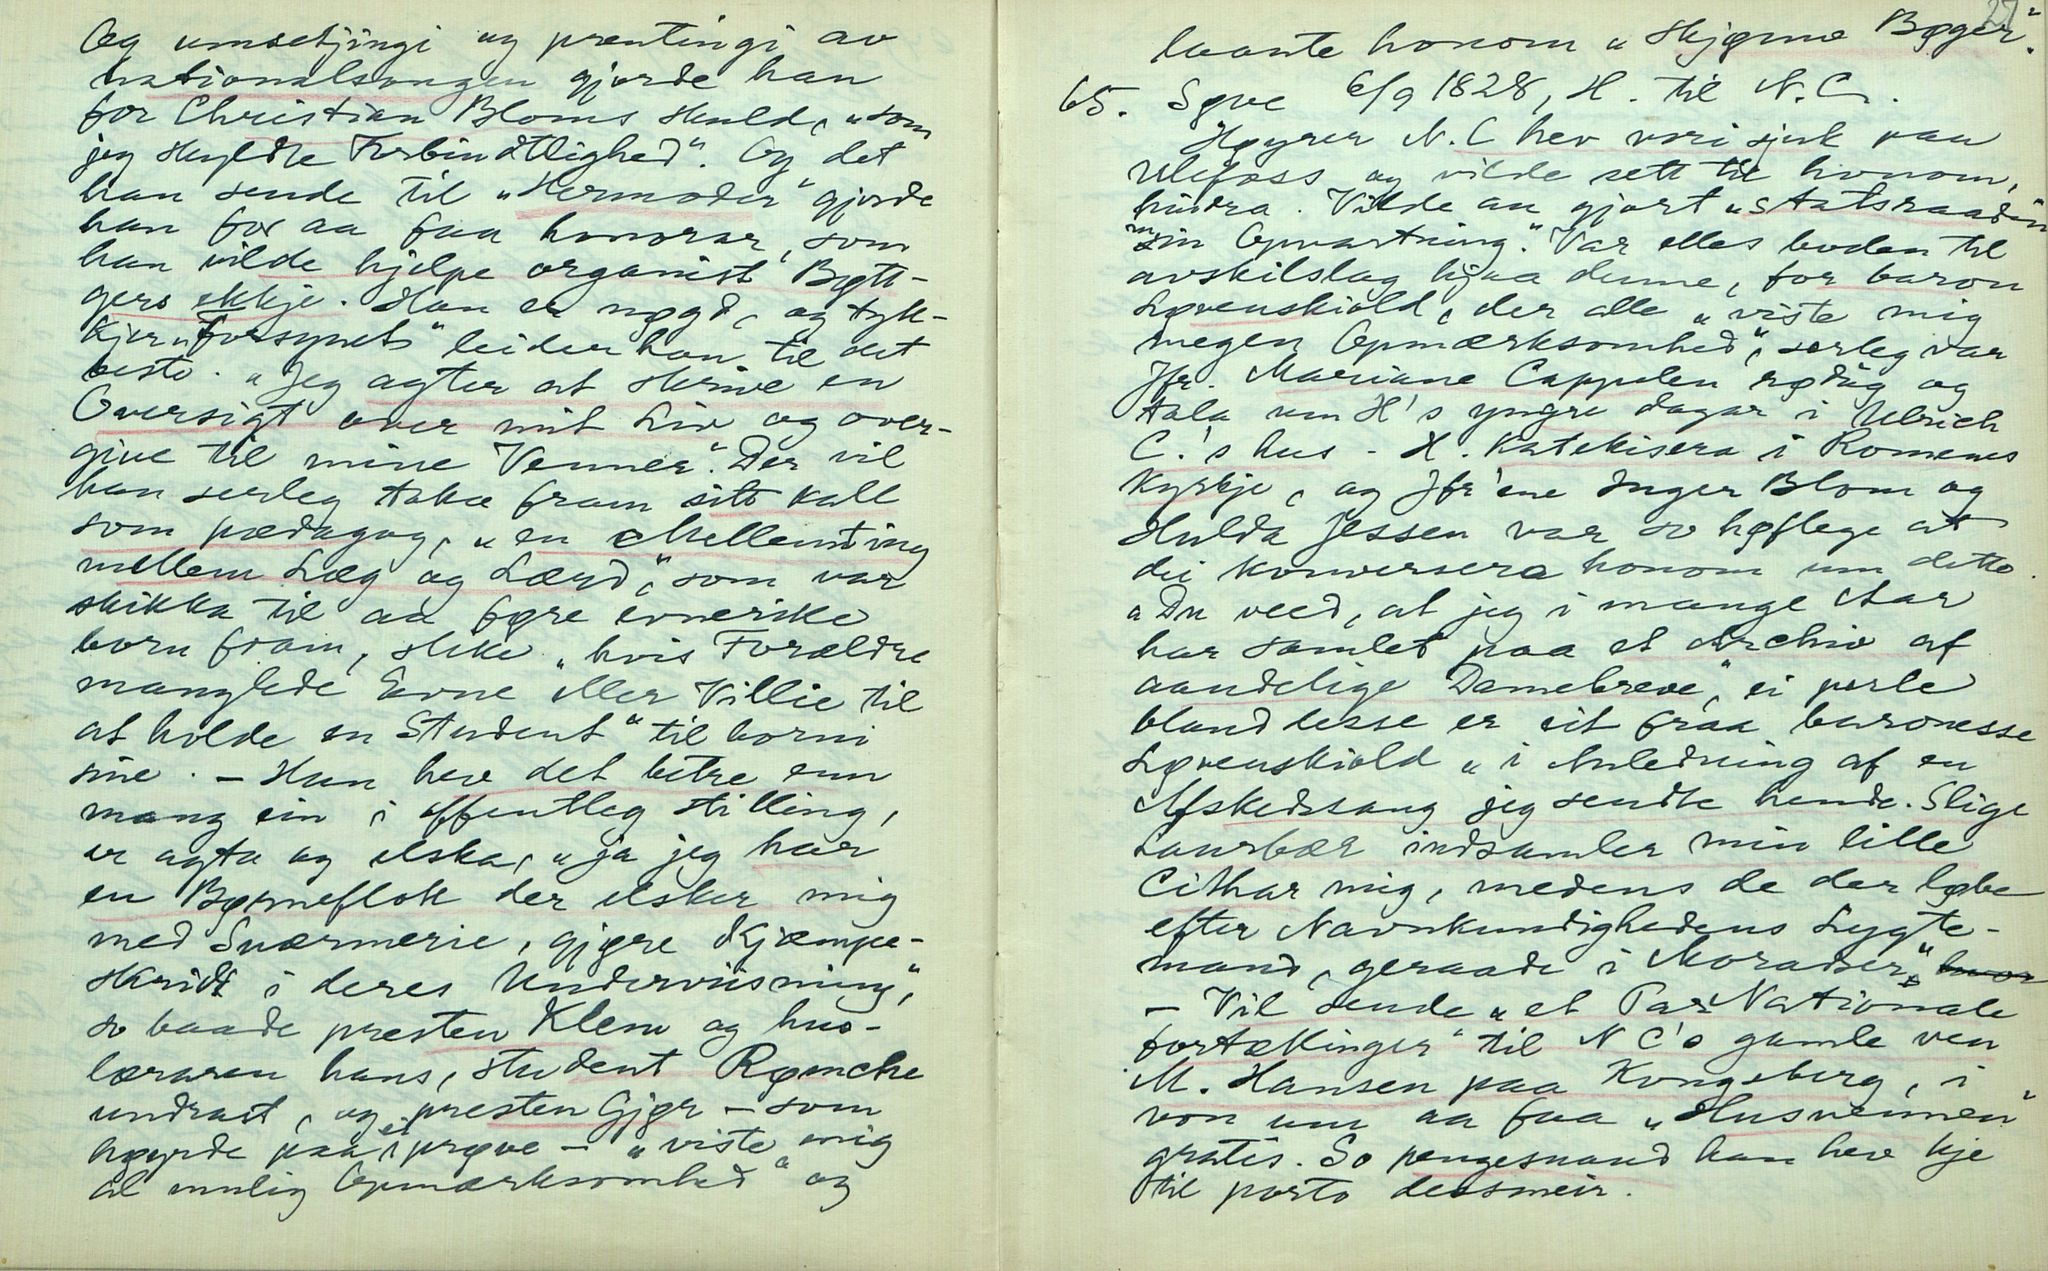 Og umsetjingi og prentingi av
nationalsongen gjorde han
for Christian Bloms Skuld, "som
jeg skyldte Forbindtlighed". Og det
han sende til "Hermoder" gjorde
han for aa faa honorar, som
han vilde hjelpe organist Bøtt-
gers ekkje. Han er nøgd, og tyk-
kjer "Forsynet" leider han til det
beste. "Jeg agter at skrive en
Oversigt over mit Liv og over-
give til mine Venner". Der vil
han serleg taka fram sitt kall
som pædagog, "en Mellemting
mellem Læg og Lærd", som var
skikka til aa føre evnerike
born fram, slike "hvis Forældre
manglede Evne eller Villie til
at holde en Student" til borni
sine. – Han hev det betre enn
mang ein i offentleg stilling,
er agta og elska, "ja jeg har
en Børneflok der elsker mig
med Sværmerie, gjøre Kjæmpe-
skridt i deres Underviisning",
so baade presten Klem og hus-
læraren hans, student Rømcke
undrast, og presten Gjør – som
høyrde paa ei prøve – "viste mig
al mulig Opmærksomhed" og
27
laante honom "Skjønne Bøger".
65. Søve 6/9 1828, H. til N.C.
Høyrer N.C hev vori sjuk paa
Ulefoss og vilde sett til honom,
hindra. Vilde au gjort "Statsraadin
min Opvartning". Var elles boden til
avskilslag hjaa denne, for baron
Løvenskiold, der alle "viste mig
megen Opmærksomhed", serleg var
Jfr. Mariane Cappelen rødug og
tala um H's yngre dagar i Ulrich
C.'s hus. – H. katekisera i Romenes
kyrkje, og Jfr'ene Inger Blom og
Hulda Jessen var so høflege at
dei konversera honom um dette.
"Du veed, at jeg i mange Aar
har samlet paa et Archiv af
aandelige Damebreve", ei perle
bland desse er eit fraa baronesse
Løvenskiold "i Anledning af en
Afskedssang jeg sendte hende. Slige
Laurbær indsamler min lille
Cithar mig, medens de der løbe
efter Navnkundighedens Lygte-
mand, geraade i Moradser".
– Vil sende "et Par Nationale
fortællinger" til N C's gamle ven
M. Hansen paa Kongsberg, i
von um aa faa "Husvennen"
gratis. So pengesnaud han hev kje
til porto dessmeir.